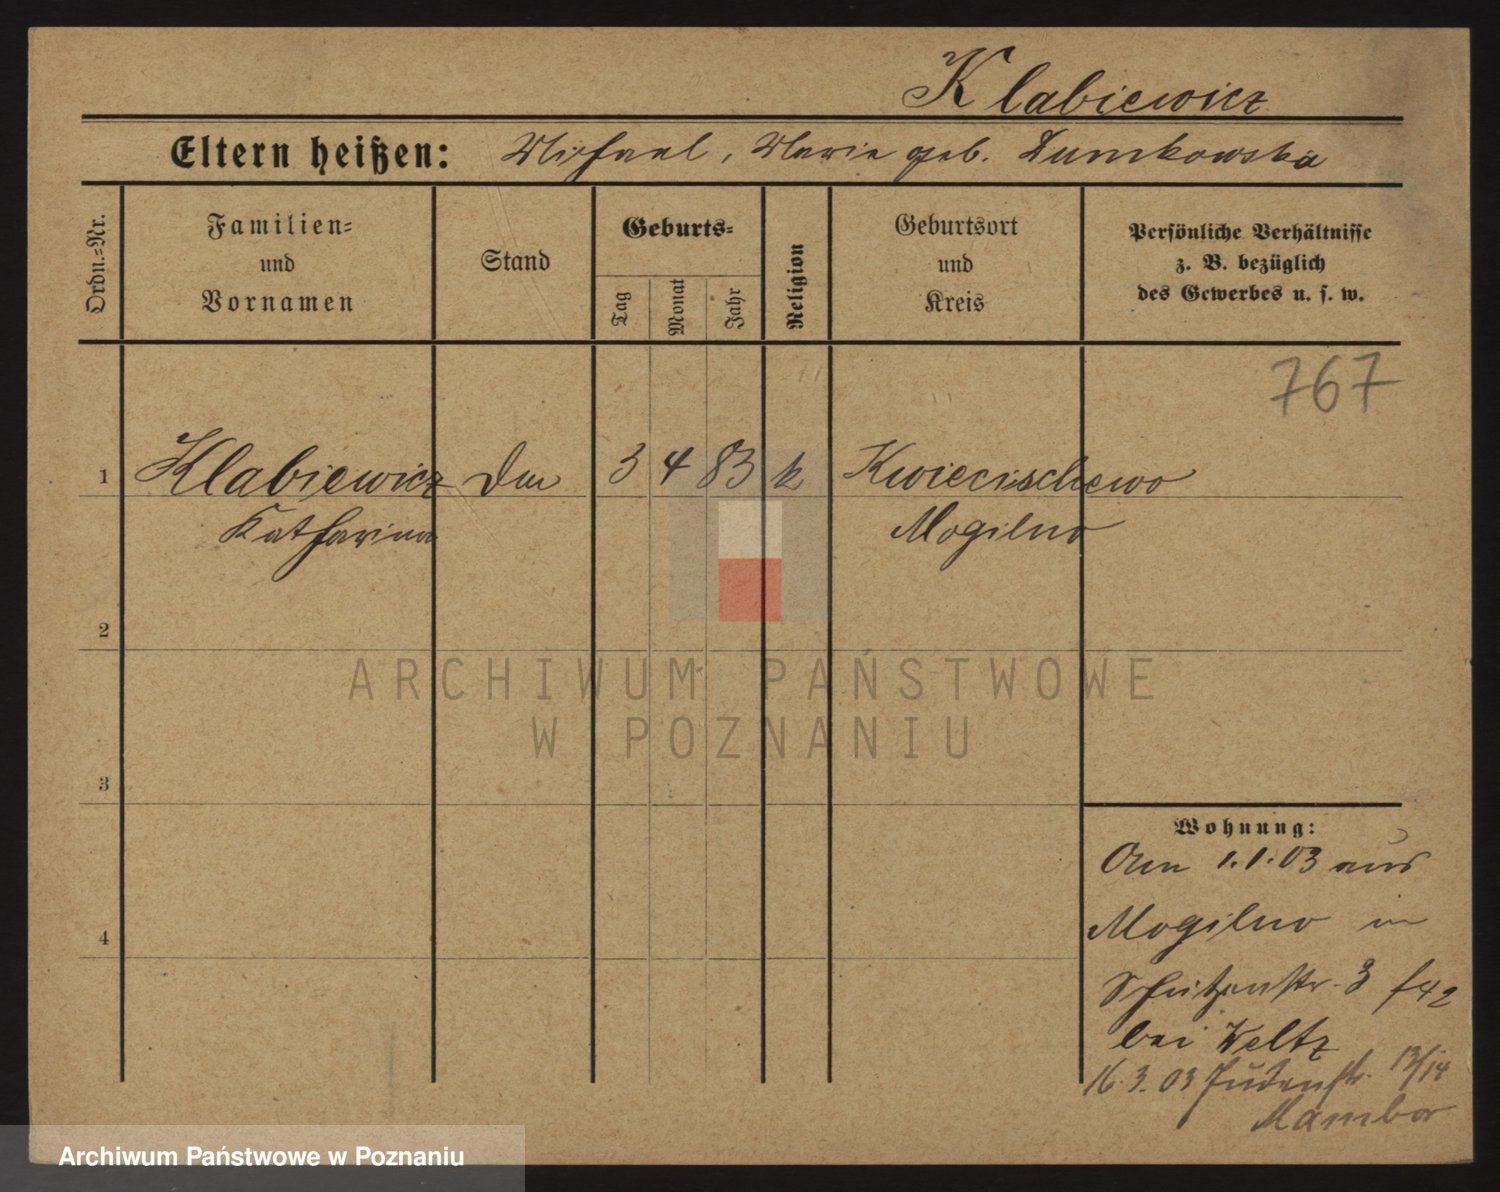 Klabiewicz
Eltern heißen: Michael, Marie geb. Dumkowska
Ordn.=Nr.
Familien=
und
Vornamen
Stand
Geburts=
Tag
Monat
Jahr
Religion
Geburtsort
und
Kreis
Persönliche Verhältnisse
z. B. bezüglich
des Gewerbes u. s. w.
767
1 Klabiewicz 3 4 83 k Kwiecischewo
Katharina Mogilno
2
ARCHIWUM PAŃSTWOWE
W POZNANIU
3
4
Wohnung:
Am 1.1.03 aus
Mogilno in
Schützenstr. 3
bei Weltz
16.3.03 Judenstr. 13/14
Mambor
Archiwum Państwowe w Poznaniu